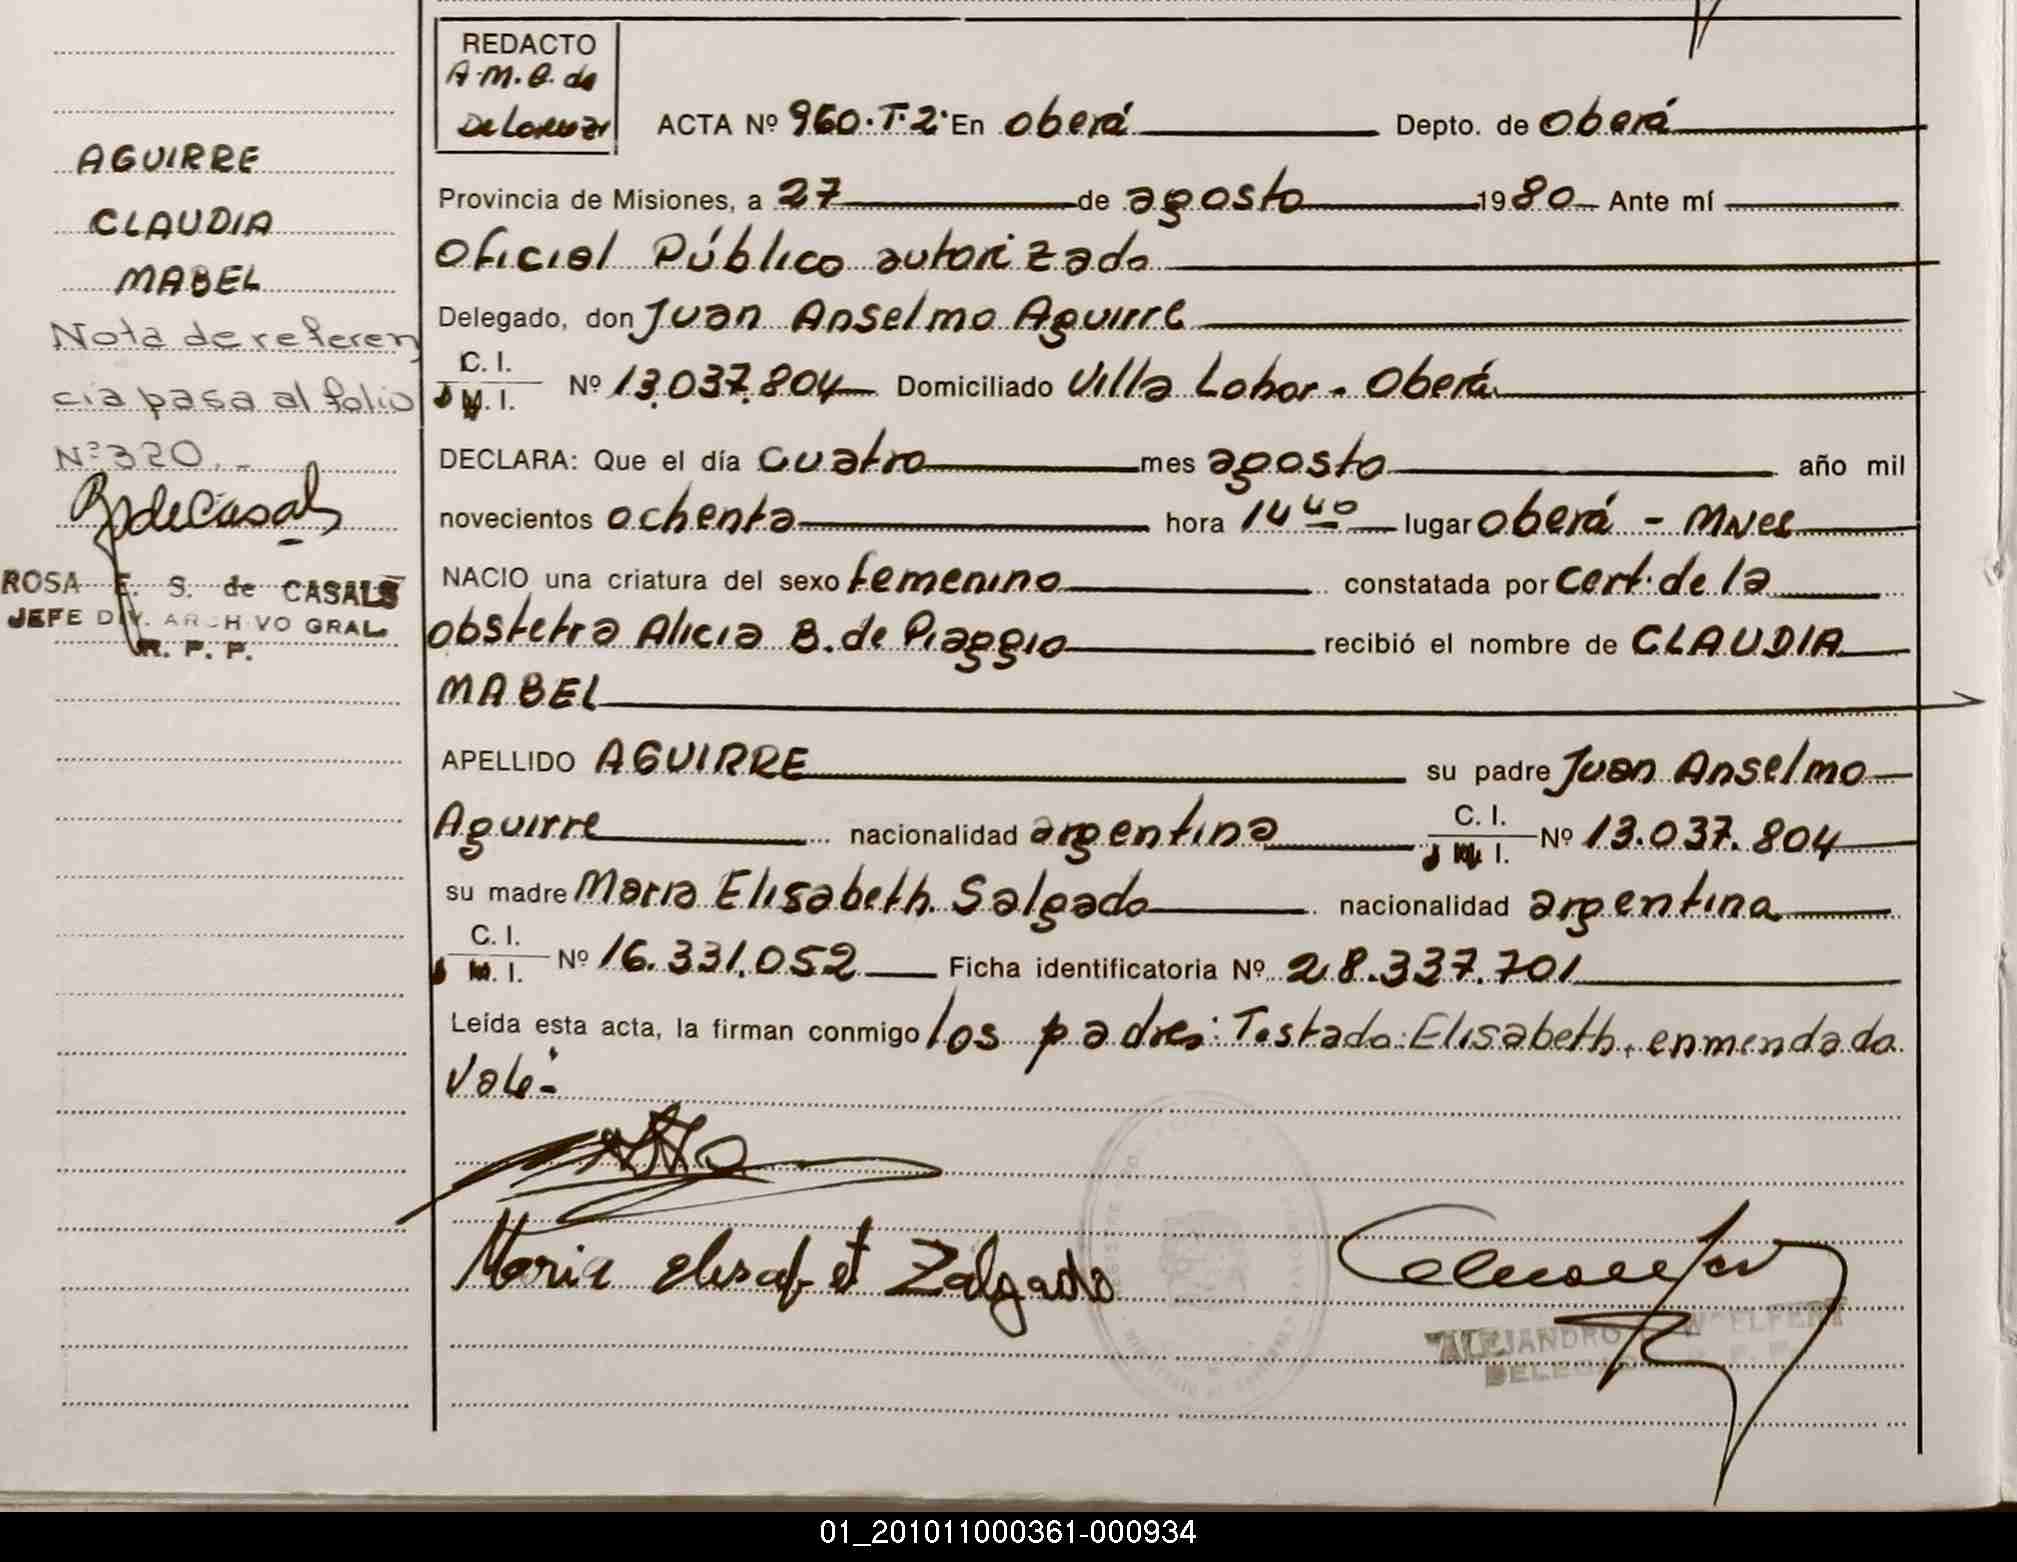 REDACTO
A.M.B. de
De Lorenzi
ACTA Nº 960.T.2. En Oberá Depto. de Oberá
Provincia de Misiones, a 27 de agosto 1980 Ante mí
Oficial Público autorizado
Delegado, don Juan Anselmo Aguirre
C. I.
M. I. Nº 13.037.804 Domiciliado Villa Lohor - Oberá
DECLARA: Que el día cuatro mes agosto año mil
novecientos ochenta hora 14 40 lugar Oberá - Mnes
NACIO una criatura del sexo femenino constatada por cert. de la
obstetra Alicia B. de Piaggio recibió el nombre de CLAUDIA
MABEL
APELLIDO AGUIRRE su padre Juan Anselmo
Aguirre nacionalidad argentina C. I. Nº 13.037.804
su madre Maria Elisabeth Salgado nacionalidad argentina
C. I.
M. I. Nº 16.331.052 Ficha identificatoria Nº 28.337.701
Leída esta acta, la firman conmigo los padres: Testado: Elisabeth, enmendado
Vale-
Maria Elisabet Zalgado
ALEJANDRO
AGUIRRE
CLAUDIA
MABEL
Nota de referen
cia pasa al folio
Nº 320.-
R de Casals
ROSA E. S. de CASALS
JEFE DIV. ARCHIVO GRAL.
R. P. P.
01_201011000361-000934